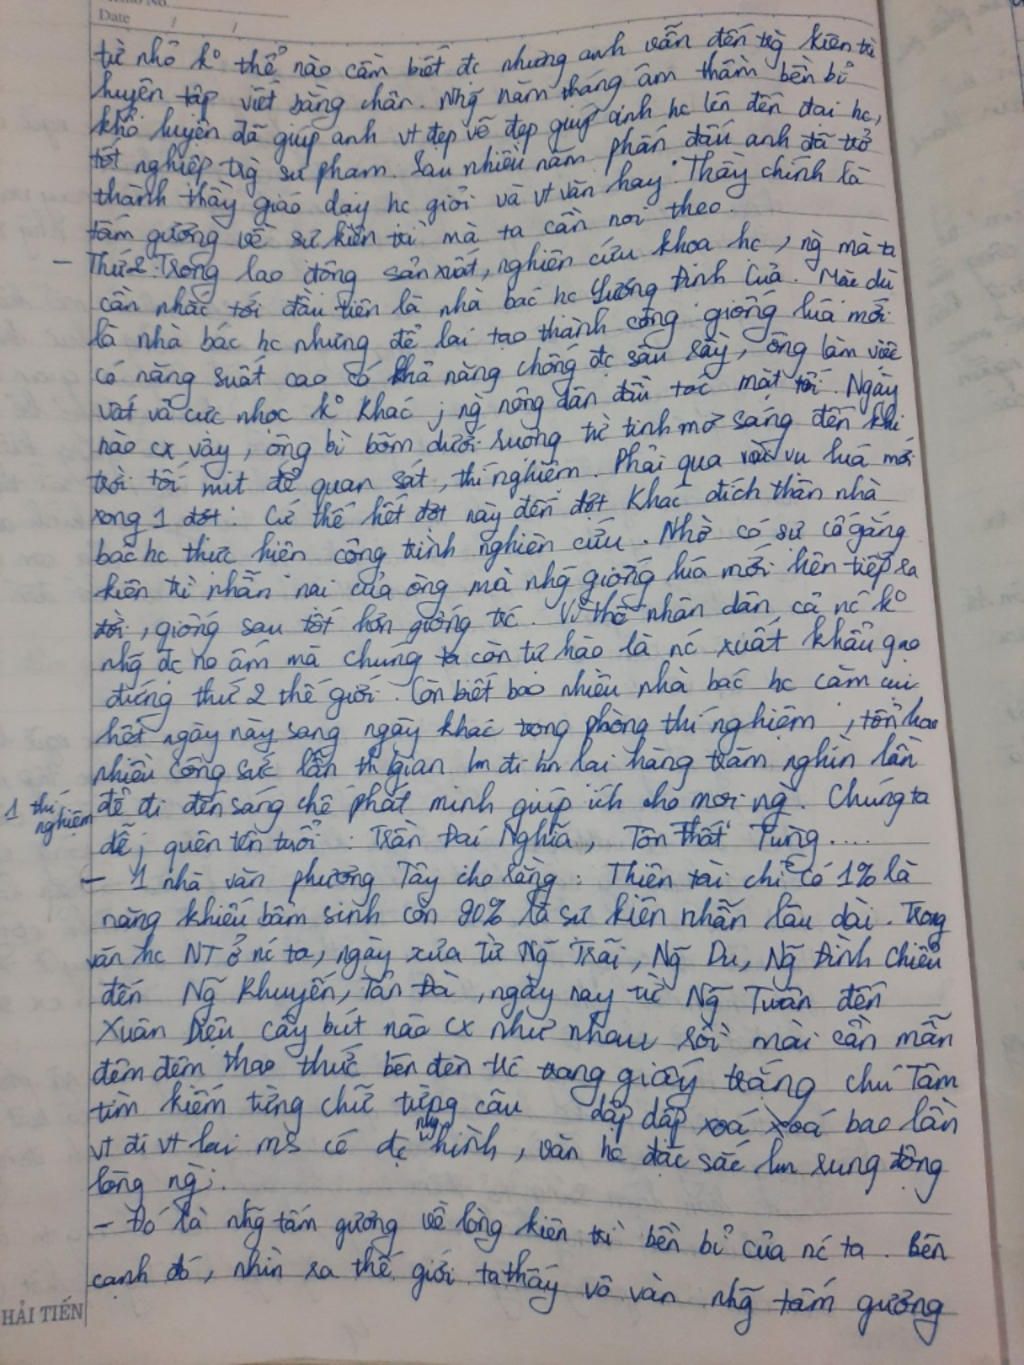 Date / /
từ nhỏ ko thể nào cầm biết đc nhưng anh vẫn đến trg kiên trì
luyện tập viết bằng chân. Nhg năm tháng âm thầm bền bỉ
khổ luyện đã giúp anh vt đẹp vẽ đẹp giúp anh hc lên đến đại hc,
tốt nghiệp trg sư phạm. Sau nhiều năm phấn đấu anh đã trở
thành thầy giáo dạy hc giỏi và vt văn hay. Thầy chính là
tấm gương về sự kiên trì mà ta cần noi theo.
- Thứ 2: Trong lao động sản xuất, nghiên cứu khoa hc, ng mà ta
cần nhắc tới đầu tiên là nhà bác hc Lương Đình Của. Mặc dù
là nhà bác hc nhưng để lai tạo thành công giống lúa mới
có năng suất cao có khả năng chống đc sâu rầy, ông làm việc
vất vả cực nhọc ko khác j ng nông dân đầu tắc mặt tối. Ngày
nào cx vậy, ông bì bõm dưới ruộng từ tinh mơ sáng đến khi
trời tối mịt để quan sát, thí nghiệm. Phải qua vài vụ lúa mới
xong 1 đợt. Cứ thế hết đợt này đến đợt khác đích thân nhà
bác hc thực hiện công trình nghiên cứu. Nhờ có sự cố gắng
kiên trì nhẫn nại của ông mà nhg giống lúa mới liên tiếp ra
đời, giống sau tốt hơn giống trc. Vì thế nhân dân cả nc ko
nhg đc no ấm mà chúng ta còn tự hào là nc xuất khẩu gạo
đứng thứ 2 thế giới. Còn biết bao nhiêu nhà bác hc cặm cụi
hết ngày này sang ngày khác trong phòng thí nghiệm, tốn hao
nhiều công sức lẫn th gian lm đi lm lại hàng trăm nghìn lần
1 thí nghiệm để đi đến sáng chế phát minh giúp ích cho mọi ng. Chúng ta
dễ j quên tên tuổi: Trần Đại Nghĩa, Tôn Thất Tùng....
- 1 nhà văn phương Tây cho rằng: Thiên tài chỉ có 1% là
năng khiếu bẩm sinh còn 90% là sự kiên nhẫn lâu dài. Trong
văn hc NT ở nc ta, ngày xưa từ Ng Trãi, Ng Du, Ng Đình Chiểu
đến Ng Khuyến, Tản Đà, ngày nay từ Ng Tuân đến
Xuân Diệu cây bút nào cx như nhau rồi mài cần mẫn
đêm đêm thao thức bên đèn trc trang giấy trắng chú tâm
tìm kiếm từng chữ từng câu dập dập xoá xoá bao lần
vt đi vt lại ms có đc nhg hình, văn hc đặc sắc lm rung động
lòng ng.
- Đó là nhg tấm gương về lòng kiên trì bền bỉ của nc ta. Bên
cạnh đó, nhìn ra thế giới ta thấy vô vàn nhg tấm gương
HẢI TIẾN